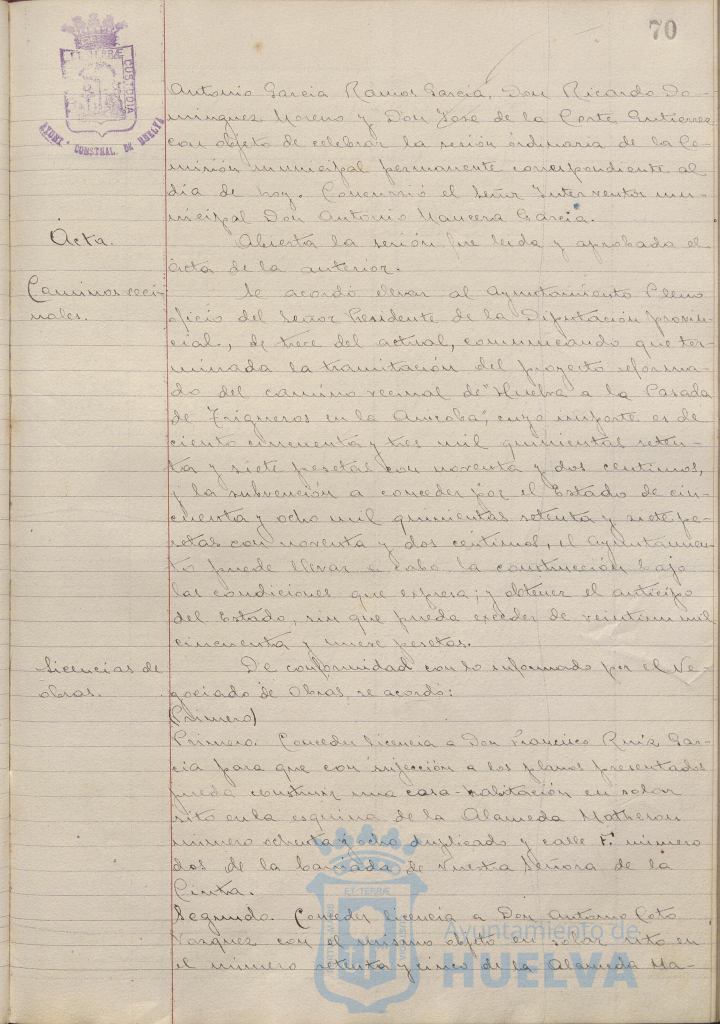 70
ET TERRÆ
CUSTODIA
AYUNT. CONSTNAL. DE HUELVA
Antonio Garcia Ramos Garcia, Don Ricardo Do-
minguez Moreno y Don Jose de la Corte Gutierrez
con objeto de celebrar la sesión ordinaria de la Co-
misión municipal permanente correspondiente al
día de hoy. Concurrió el Señor Interventor mu-
nicipal Don Antonio Mancera Garcia.
Acta.
Abierta la sesión fue leida y aprobada el
acta de la anterior.
Caminos veci-
nales.
Se acordó elevar al Ayuntamiento Pleno
oficio del Señor Presidente de la Diputación provin-
cial, de trece del actual, comunicando que ter-
minada la tramitación del proyecto reforma-
do del camino vecinal de "Huelva a la Pasada
de Trigueros en la Anicoba", cuyo importe es de
ciento cincuenta y tres mil quinientas seten-
ta y siete pesetas con noventa y dos centimos,
y la subvención a conceder por el Estado de cin-
cuenta y ocho mil quinientas setenta y siete pe-
setas con noventa y dos centimos, el Ayuntamien-
to puede llevar a cabo la construcción bajo
las condiciones que expresa; y obtener el anticipo
del Estado, sin que pueda exceder de veintiun mil
cincuenta y nueve pesetas.
Licencias de
obras.
De conformidad con lo informado por el Ne-
gociado de Obras, se acordó:
(Primero)
Primero. Conceder licencia a Don Francisco Ruiz Gar-
cia para que con sujección a los planos presentados
pueda construir una casa-habitación en solar
sito en la esquina de la Alameda Matheron
número ochenta y ocho duplicado y calle F. número
dos de la barriada de Nuestra Señora de la
Cinta.
Segundo. Conceder licencia a Don Antonio Coto
Vazquez con el mismo objeto en solar sito en
el número setenta y cinco de la Alameda Ma-
ET TERRÆ
Ayuntamiento de
HUELVA